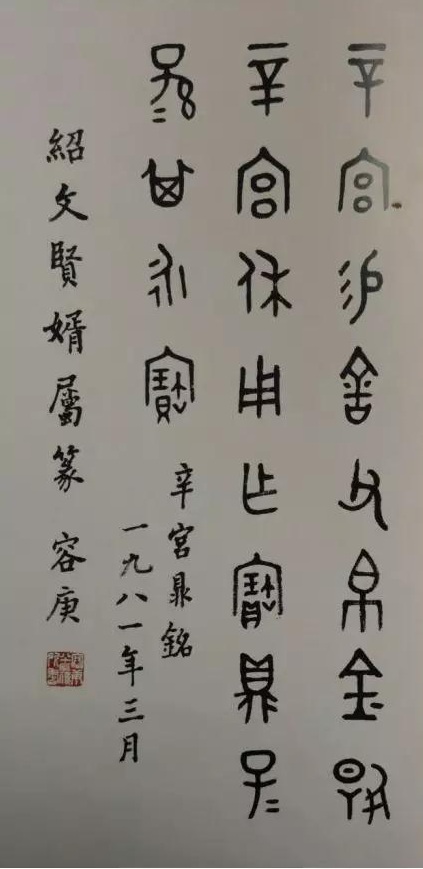 辛宮易舍父帛金揚
辛宮休用乍寶鼎子＝
孫＝其永寶
辛宮鼎銘
一九八一年三月
紹文賢婿屬篆 容庚